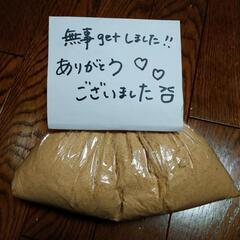 無事getしました!!
ありがとう♡♡
ございました